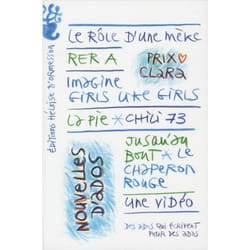 LE RÔLE D'UNE MÈRE
RER A
PRIX
CLARA
IMAGINE
GIRLS LIKE GIRLS
LA PIE * CHILI 73
NOUVELLES
D'ADOS
JUSQU'AU
BOUT * LE
CHAPERON
ROUGE
UNE VIDÉO
DES ADOS QUI ÉCRIVENT
POUR DES ADOS
ÉDITIONS HÉLOÏSE D'ORMESSON